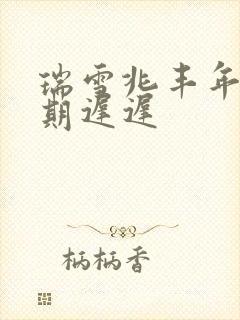 瑞雪兆丰年
期遲遲
柄柄香